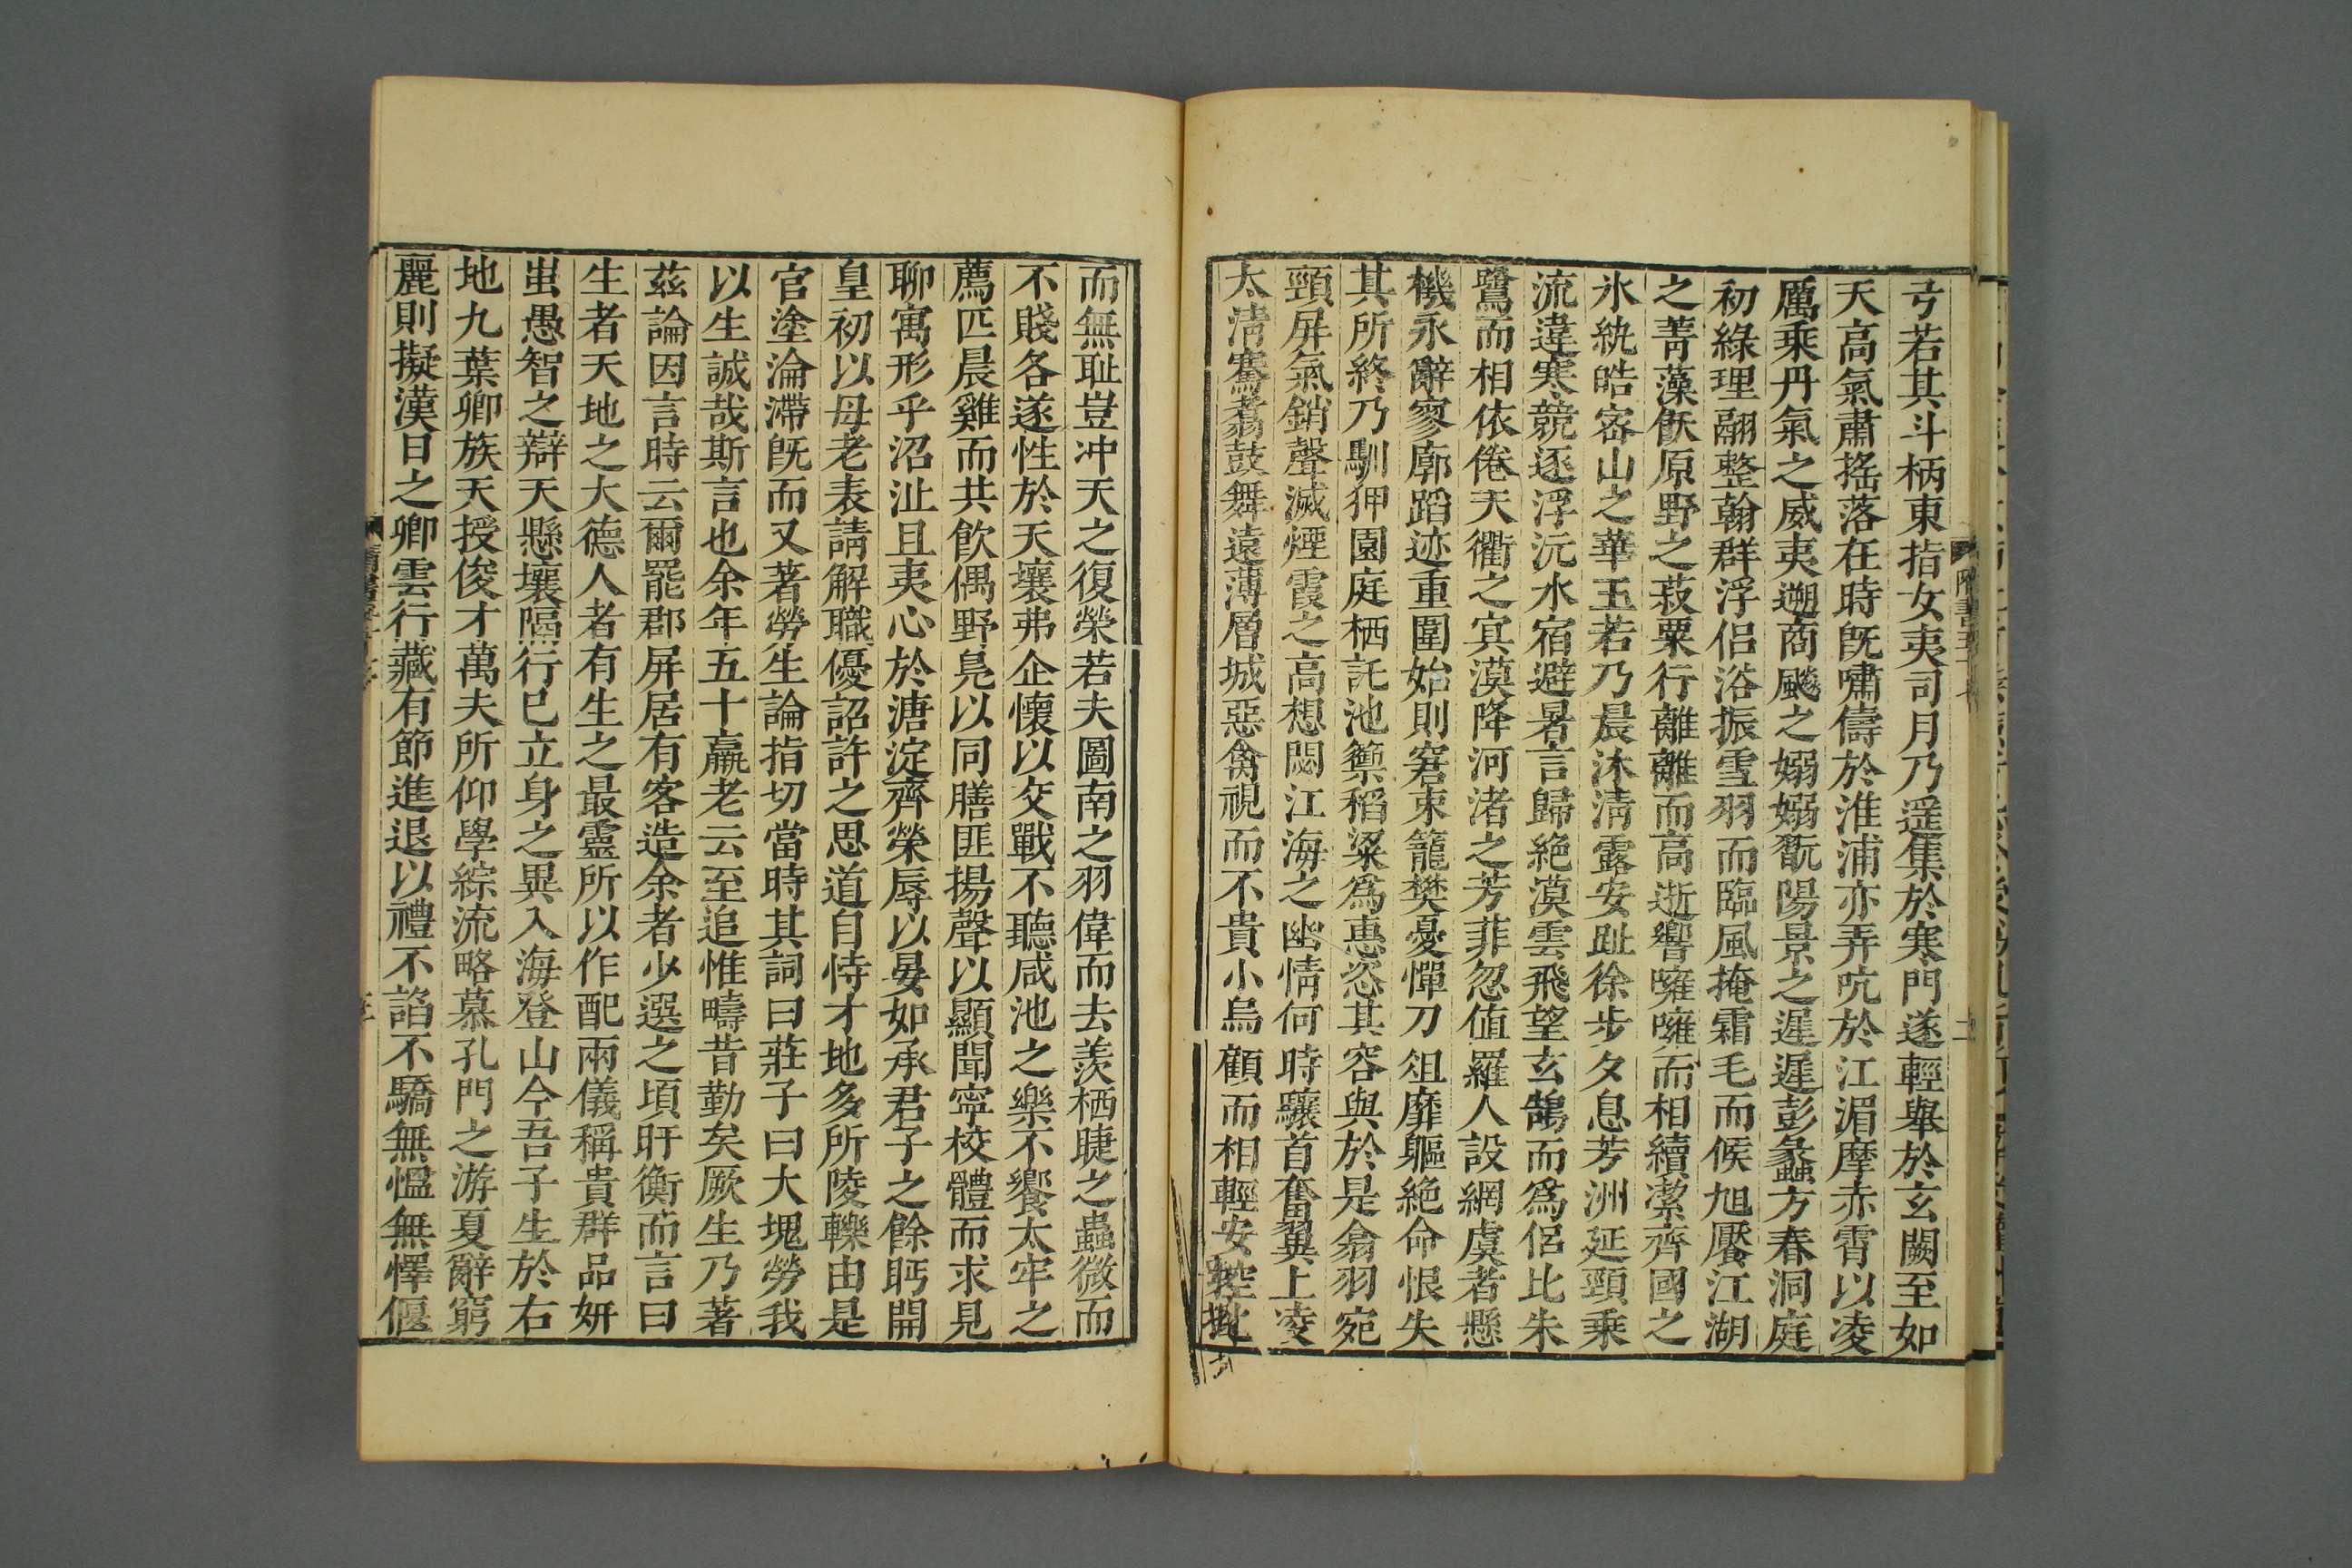 兮若其斗柄東指女夷司月乃遥集於寒門遂輕舉於玄闕至如
天高氣肅搖落在時旣嘯儔於淮浦亦弄吭於江湄摩赤霄以凌
厲乘丹氣之威夷遡商飈之嫋嫋翫陽景之遲遲彭蠡方春洞庭
初綠理翮整翰群浮侣浴振雪羽而臨風掩霜毛而候旭饜江湖
之菁藻飫原野之菽粟行離離而高逝響噰噰而相續潔齊國之
氷紈皓密山之華玉若乃晨沐清露安趾徐步夕息芳洲延頸乘
流違寒競逐浮沅水宿避暑言歸絶漠雲飛望玄鵠而爲侶比朱
鷺而相依倦天衢之冥漠降河渚之芳菲忽值羅人設網虞者懸
機永辭寥廓蹈迹重圍始則窘束籠樊憂憚刀俎靡軀絶命恨失
其所終乃馴狎園庭栖託池籞稻粱爲惠恣其容與於是翕羽宛
頸屏氣銷聲滅煙霞之高想悶江海之幽情何時驤首奮翼上凌
太清騫翥鼓舞遠薄層城惡禽視而不貴小鳥顧而相輕安控地
而無耻豈冲天之復榮若夫圖南之羽偉而去羨栖睫之蟲微而
不賤各遂性於天壤弗企懷以交戰不聽咸池之樂不饗太牢之
薦匹晨雞而共飲偶野鳧以同膳匪揚聲以顯聞寧校體而求見
聊寓形乎沼沚且夷心於溏淀齊榮辱以晏如承君子之餘眄開
皇初以母老表請解職優詔許之思道自恃才地多所陵轢由是
官塗淪滯旣而又著勞生論指切當時其詞曰莊子曰大塊勞我
以生誠哉斯言也余年五十羸老云至追惟疇昔勤矣厥生乃著
茲論因言時云爾罷郡屏居有客造余者少選之頃盱衡而言曰
生者天地之大德人者有生之最靈所以作配兩儀稱貴群品妍
蚩愚智之辯天懸壤隔行已立身之異入海登山今吾子生於右
地九葉卿族天授俊才萬夫所仰學綜流略慕孔門之游夏辭窮
麗則擬漢日之卿雲行藏有節進退以禮不諂不驕無愠無懌偃